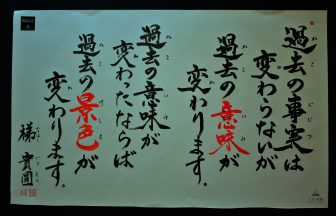 過去の事実は
変わらないが
過去の意味が
変わります。
過去の意味が
変わたならば
過去の景色が
変わります。